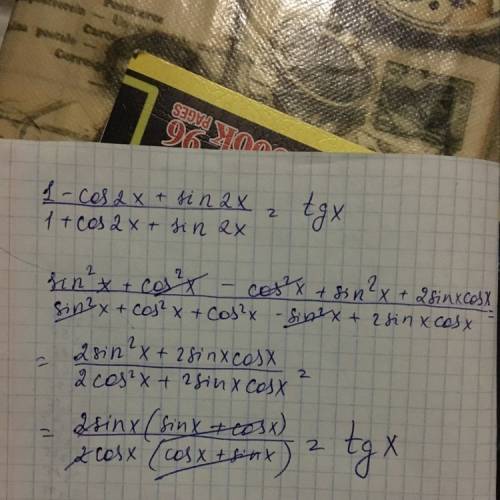 96
OOK
PAGES
1 - cos2x + sin 2x / 1 + cos2x + sin 2x = tgx
sin²x + cos²x - cos²x + sin²x + 2sinxcosx / sin²x + cos²x + cos²x - sin²x + 2sinxcosx =
= 2sin²x + 2sinxcosx / 2cos²x + 2sinxcosx =
= 2sinx(sinx + cosx) / 2cosx(cosx + sinx) = tgx